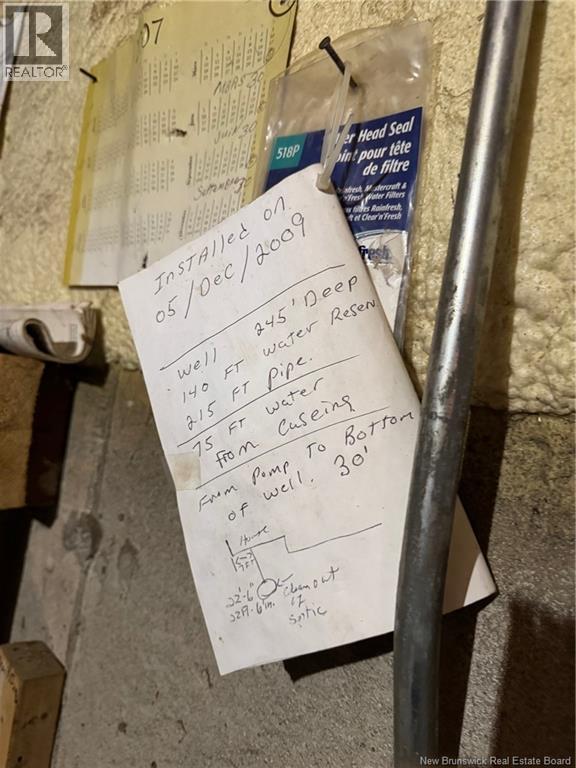 REALTOR®
07
MARS 30
518P
er Head Seal
oint pour tête
de filtre
Rainfresh, Mastercraft &
Water Filters
ft et Clear'n'Fresh
fresh
INSTAlled on
05/Dec/2009
well 245' Deep
140 FT water Reserv
215 FT pipe.
75 FT water
from Caseing
From Pomp To Bottom
of well. 30'
House
22'-6"
22FT-6in.
Clean out
of
Sptic
New Brunswick Real Estate Board